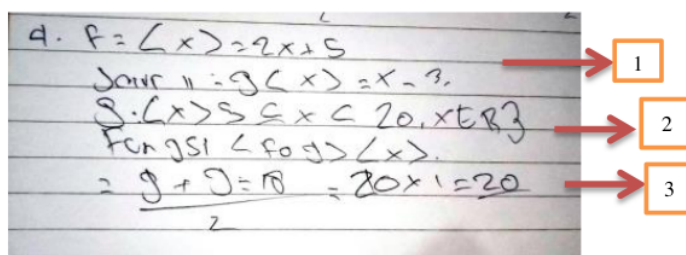 4. f = (x) = 2x + 5
1
= g(x) = x - 3.
g.(x) 5 ≤ x < 20, x ∈ R}
2
Fungsi (fog)(x).
= 9 + 9 = 18 = 20 x 1 = 20
3
2